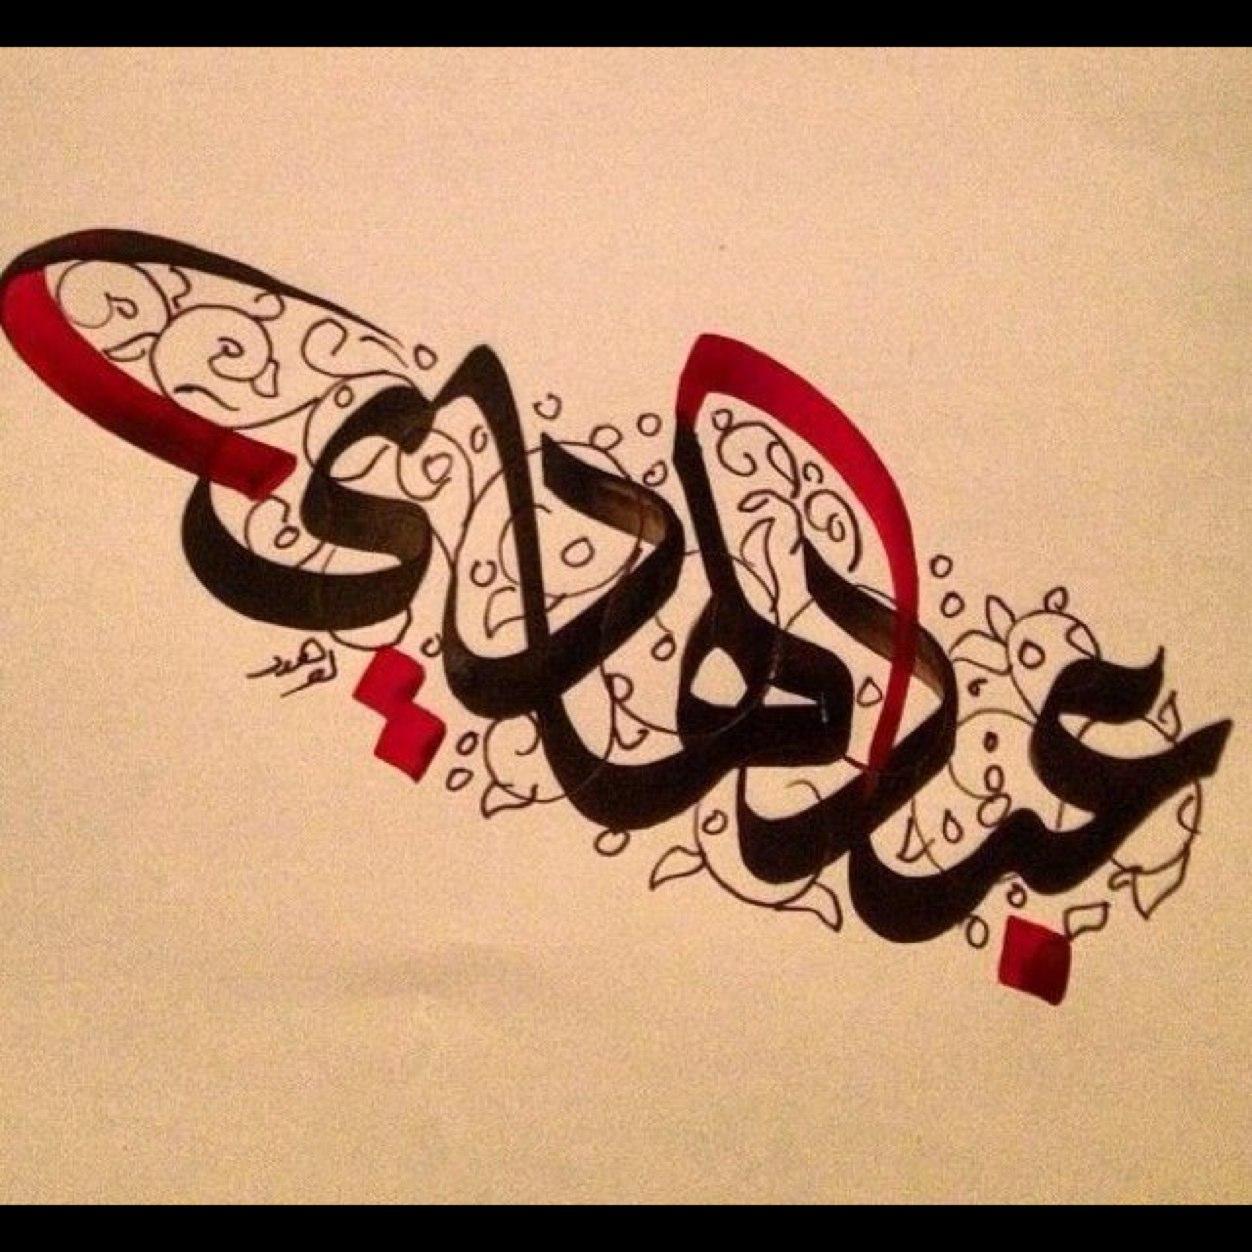 عبدالهادي